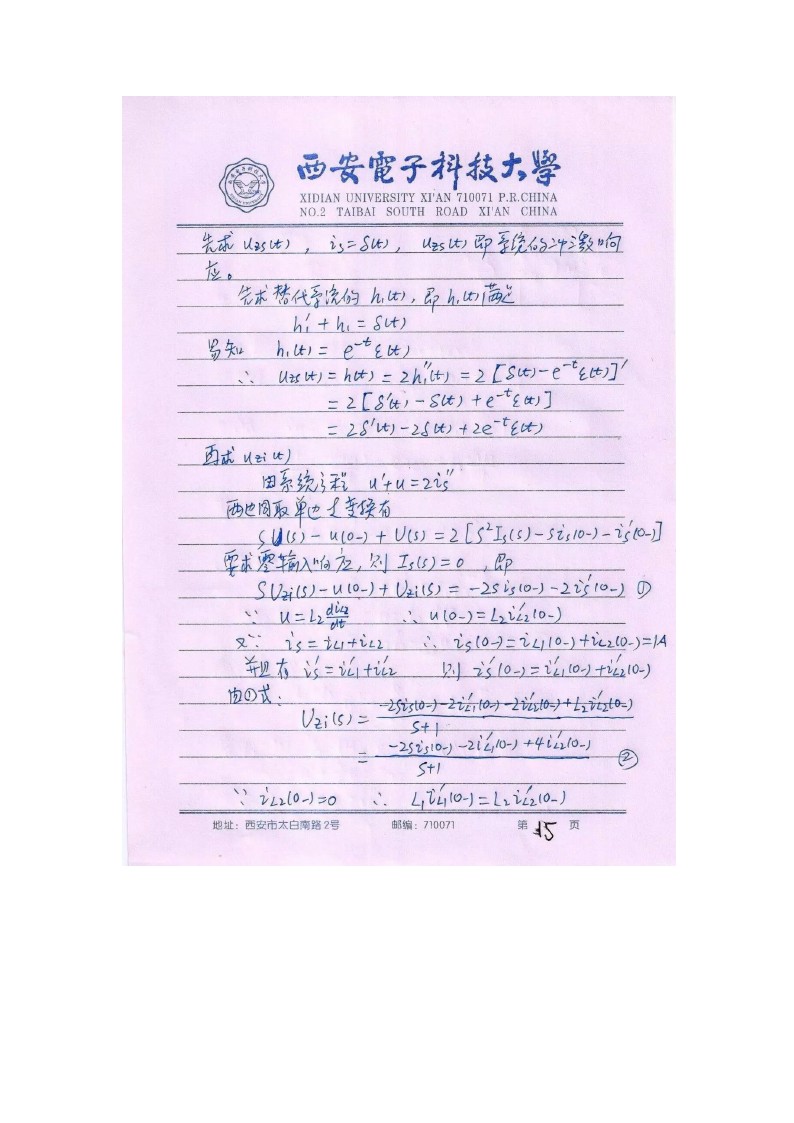 西安電子科技大學
XIDIAN UNIVERSITY XI'AN 710071 P.R.CHINA
NO.2 TAIBAI SOUTH ROAD XI'AN CHINA
先求 uzs(t) , is=δ(t) , uzs(t) 即系统的冲激响
应。
先求替代系统的 h₁(t), 即 h₁(t)满足
h₁' + h₁ = δ(t)
易知 h₁(t) = e^-t ε(t)
∴ uzs(t) = h(t) = 2h₁''(t) = 2[δ(t)-e^-t ε(t)]'
= 2[δ'(t) - δ(t) + e^-t ε(t)]
= 2δ'(t)-2δ(t)+2e^-t ε(t)
再求 uzi(t)
由系统方程 u'+u=2is''
两边同取单边变换有
SU(s) - u(0-) + U(s) = 2[S²Is(s) - Sis(0-) - is'(0-)]
要求零输入响应, 则 Is(s)=0 , 即
SUzi(s) - u(0-) + Uzi(s) = -2Sis(0-) - 2is'(0-) ①
∵ u=L₂ diL2/dt ∴ u(0-)=L₂iL2'(0-)
又∵ is = iL1+iL2 ∴ is(0-)=iL1(0-)+iL2(0-)=1A
并且有 is'=iL1'+iL2' 则 is'(0-)=iL1'(0-)+iL2'(0-)
由①式:
Uzi(s) = (-2Sis(0-)-2iL1'(0-)-2iL2'(0-)+L₂iL2'(0-))/(S+1)
= (-2Sis(0-)-2iL1'(0-)+4iL2'(0-))/(S+1) ②
∵ iL2(0-)=0 ∴ L₁iL1'(0-)=L₂iL2'(0-)
地址: 西安市太白南路2号 邮编: 710071 第 15 页